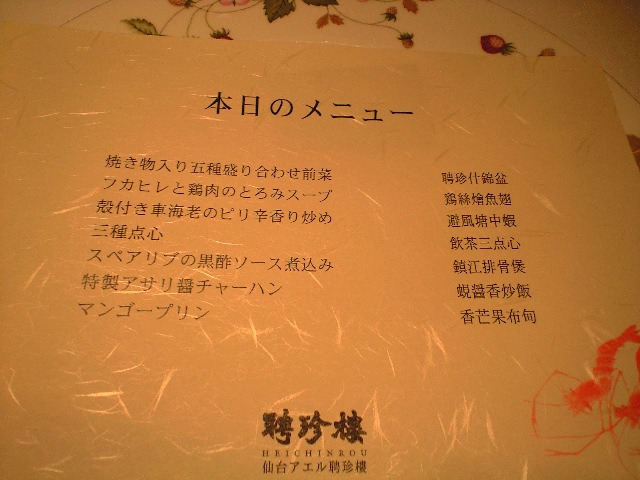 本日のメニュー
焼き物入り五種盛り合わせ前菜 聘珍什錦盆
フカヒレと鶏肉のとろみスープ 鶏絲燴魚翅
殻付き車海老のピリ辛香り炒め 避風塘中蝦
三種点心 飲茶三点心
スペアリブの黒酢ソース煮込み 鎮江排骨煲
特製アサリ醤チャーハン 蜆醤香炒飯
マンゴープリン 香芒果布甸
聘珍樓
HEICHINROU
仙台アエル聘珍樓